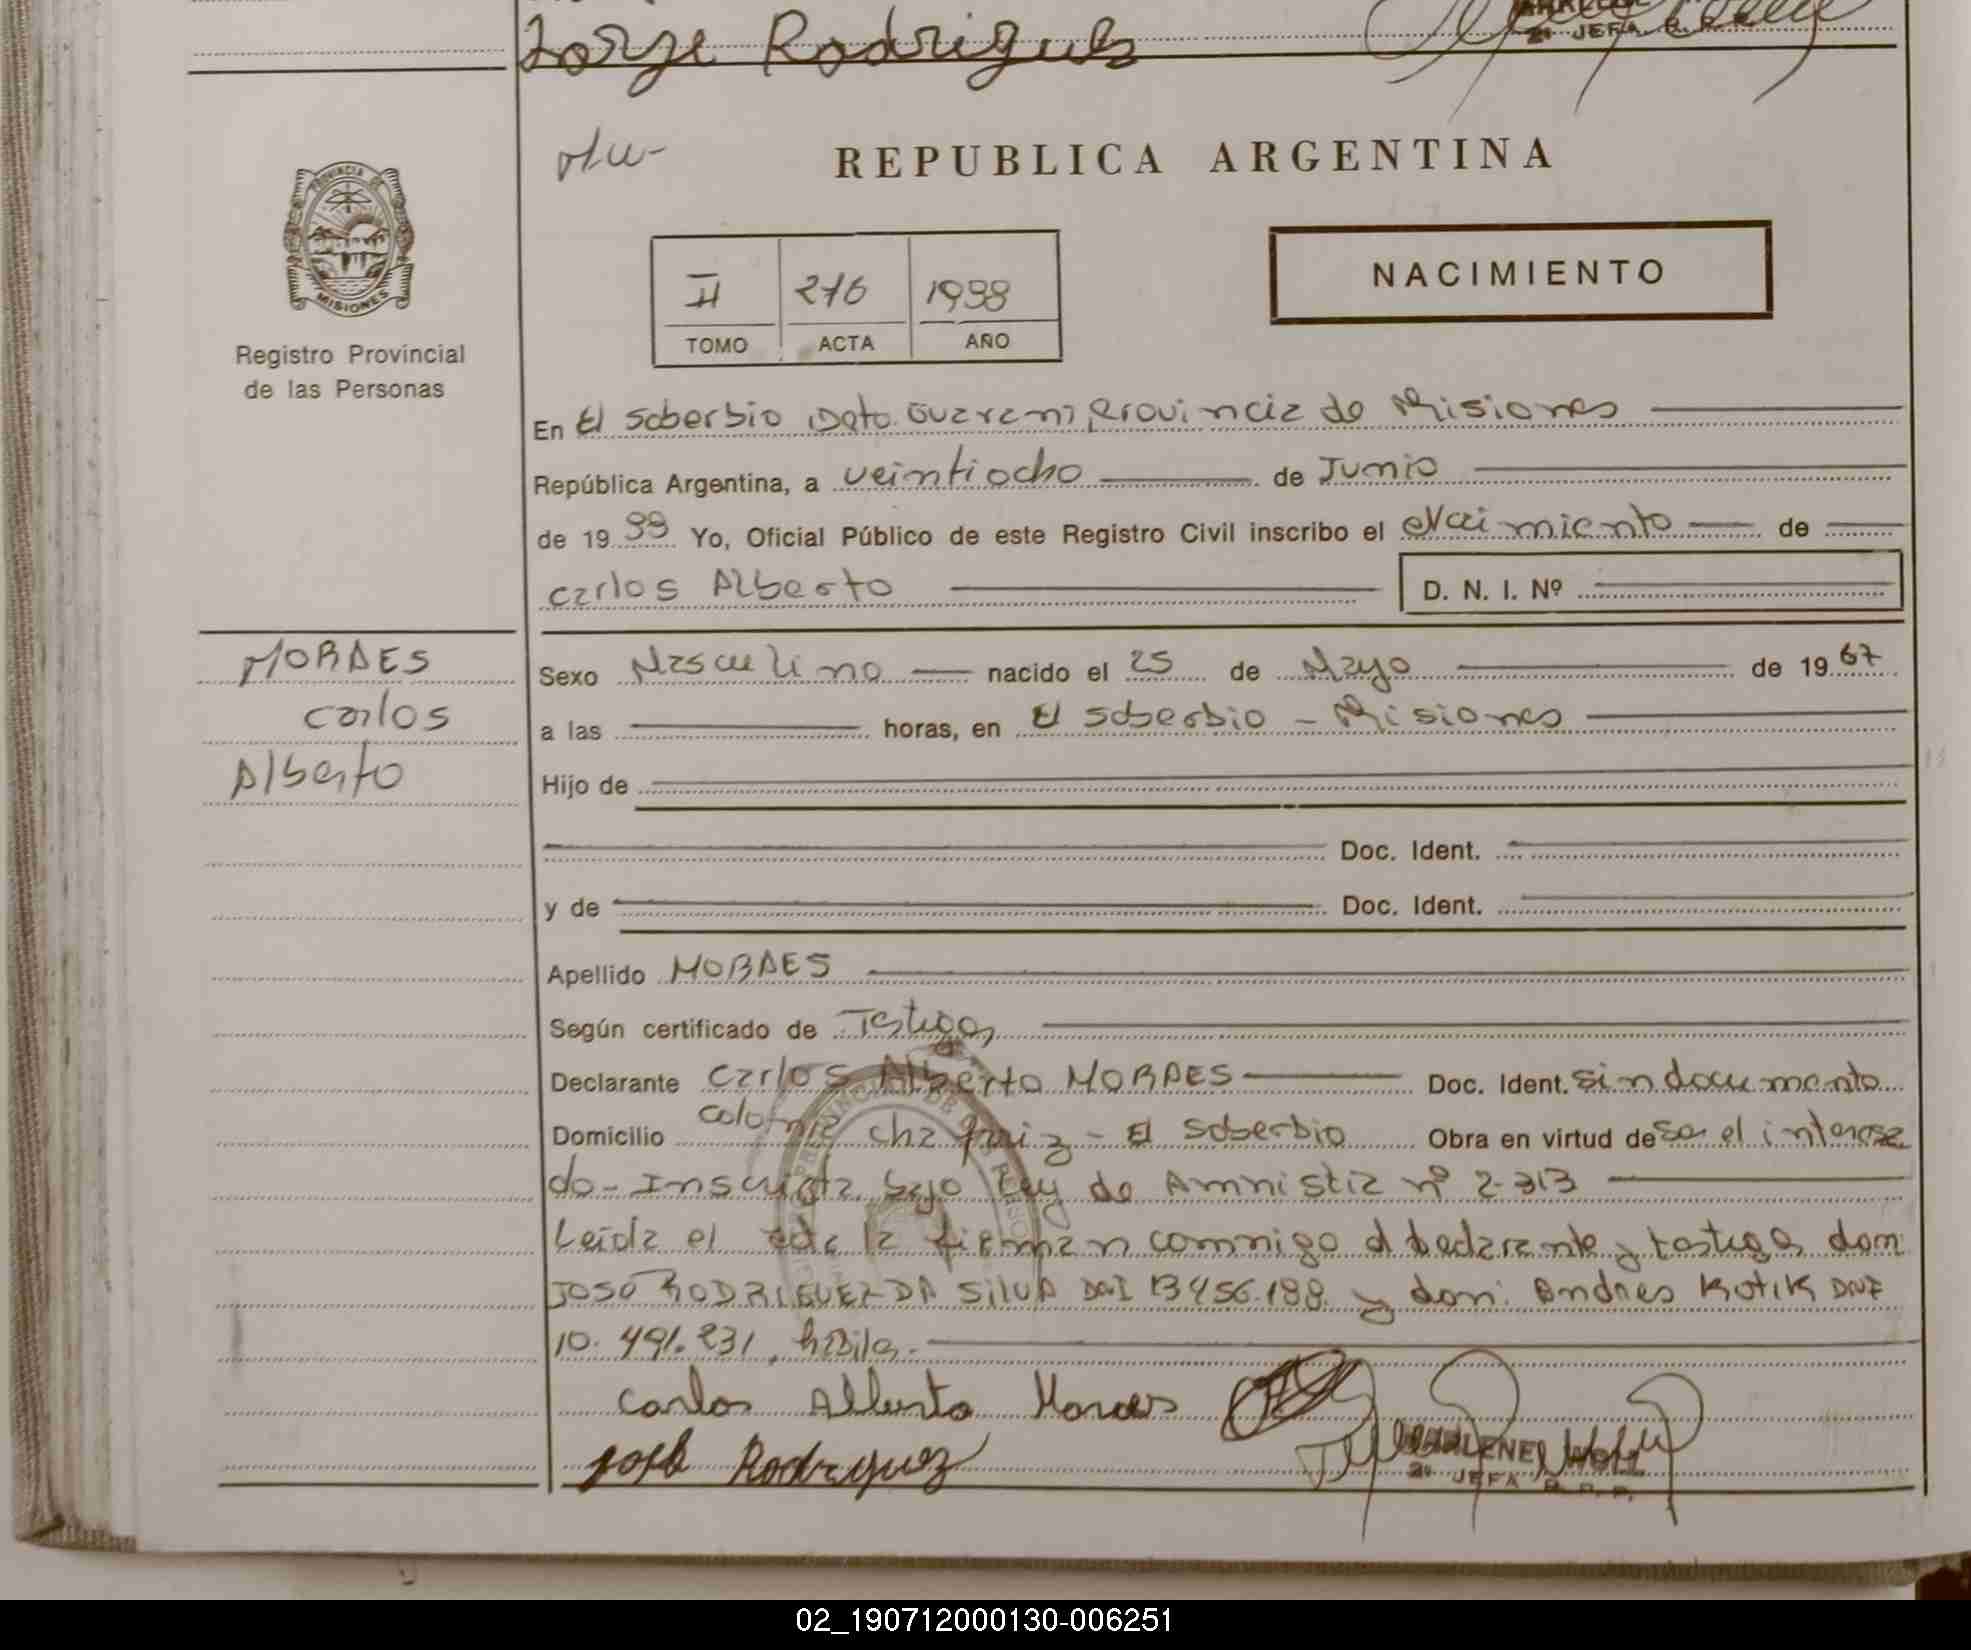 Jorge Rodriguez
2º JEFA R. P. P.
REPUBLICA ARGENTINA
PROVINCIA DE
MISIONES
Registro Provincial
de las Personas
NACIMIENTO
II 276 1998
TOMO ACTA AÑO
En El Soberbio Dpto. Guarani, Provincia de Misiones
República Argentina, a veintiocho de Junio
de 19 98 Yo, Oficial Público de este Registro Civil inscribo el Nacimiento de
Carlos Alberto D. N. I. Nº
MORAES
Carlos
Alberto
Sexo Masculino nacido el 25 de Mayo de 19 67
a las horas, en El Soberbio - Misiones
Hijo de
Doc. Ident.
y de Doc. Ident.
Apellido MORAES
Según certificado de Testigos
Declarante Carlos Alberto MORAES Doc. Ident. sin documento
Domicilio Colonia Chafariz - El Soberbio Obra en virtud de ser el interesa
do - Inscripta bajo Ley de Amnistia nº 2.313
Leida el acta la firman conmigo el declarante y testigos don
JOSÉ RODRIGUEZ DA SILVA DNI 13.456.188 y don: Andres Kotik DNI
10.491.231, habiles.
Carlos Alberto Moraes
José Rodriguez
2º JEFA R. P. P.
02_190712000130-006251